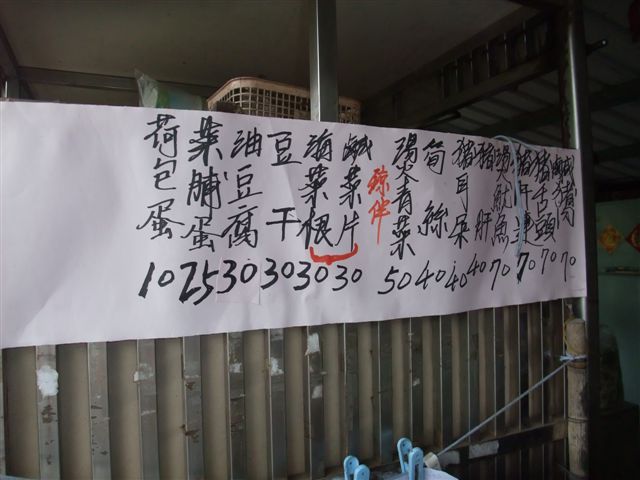 70
豬舌頭 70
豬肝連 70
燙魷魚 70
豬肝 40
豬耳朵 40
筍絲 40
燙青菜 50
涼伴
鹹菜片 30
海菜根 30
豆干 30
油豆腐 30
菜脯蛋 25
荷包蛋 10